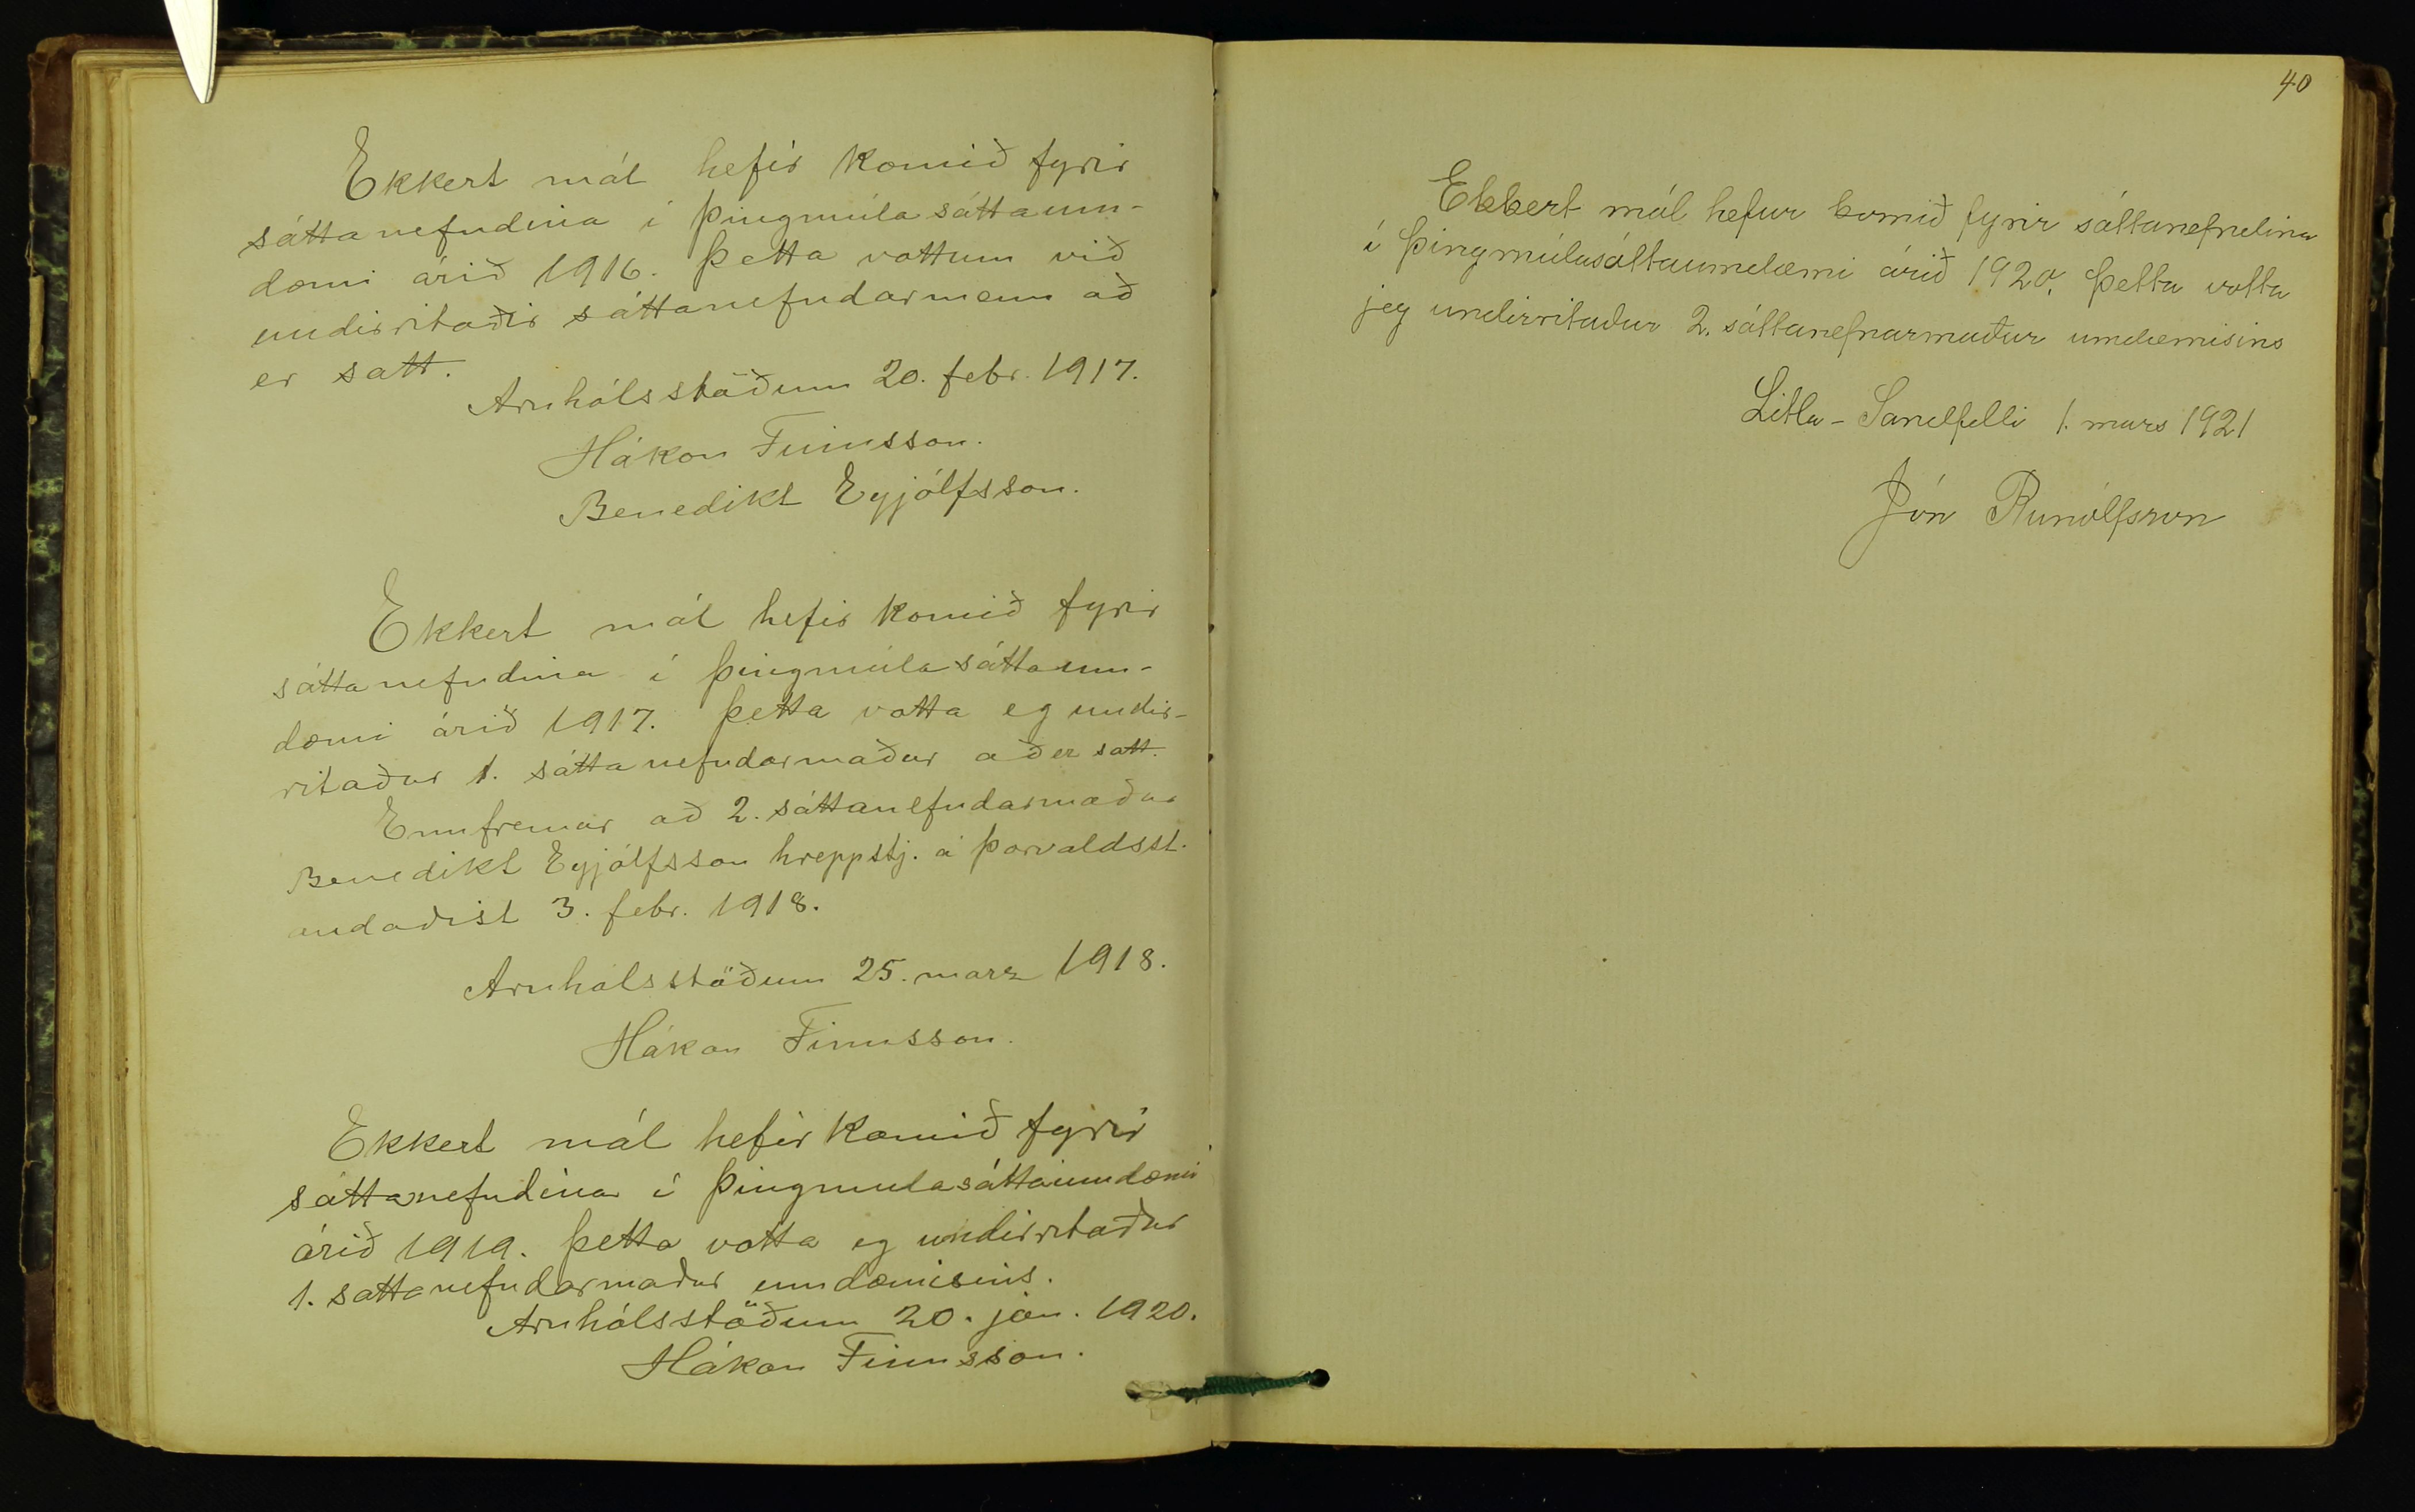 Ekkert mál hefir komið fyrir
sáttanefndina í Þingmúlasáttaum-
dæmi árið 1916. Þetta vottum við
undirritaðir sáttanefndarmenn að
er satt.
Arnhólsstöðum 20. febr. 1917.
Hákon Finnsson.
Benedikt Eyjólfsson.
Ekkert mál hefir komið fyrir
sáttanefndina í Þingmúlasáttaum-
dæmi árið 1917. Þetta votta eg undir-
ritaður 1. sáttanefndarmaður að er satt.
Ennfremur að 2. sáttanefndarmaður
Benedikt Eyjólfsson hreppstj. á Þorvaldsst.
andaðist 3. febr. 1918.
Arnhólsstöðum 25. marz 1918.
Hákon Finnsson.
Ekkert mál hefir komið fyrir
sáttanefndina í Þingmúlasáttaumdæmi
árið 1919. Þetta votta eg undirritaður
1. sáttanefndarmaður umdæmisins.
Arnhólsstöðum 20. jan. 1920.
Hákon Finnsson.
40
Ekkert mál hefur komið fyrir sáttanefndina
í Þingmúlasáttaumdæmi árið 1920. Þetta votta
jeg undirritaður 2. sáttanefnarmaður umdæmisins
Litla-Sandfelli 1. mars 1921
Jón Runólfsson